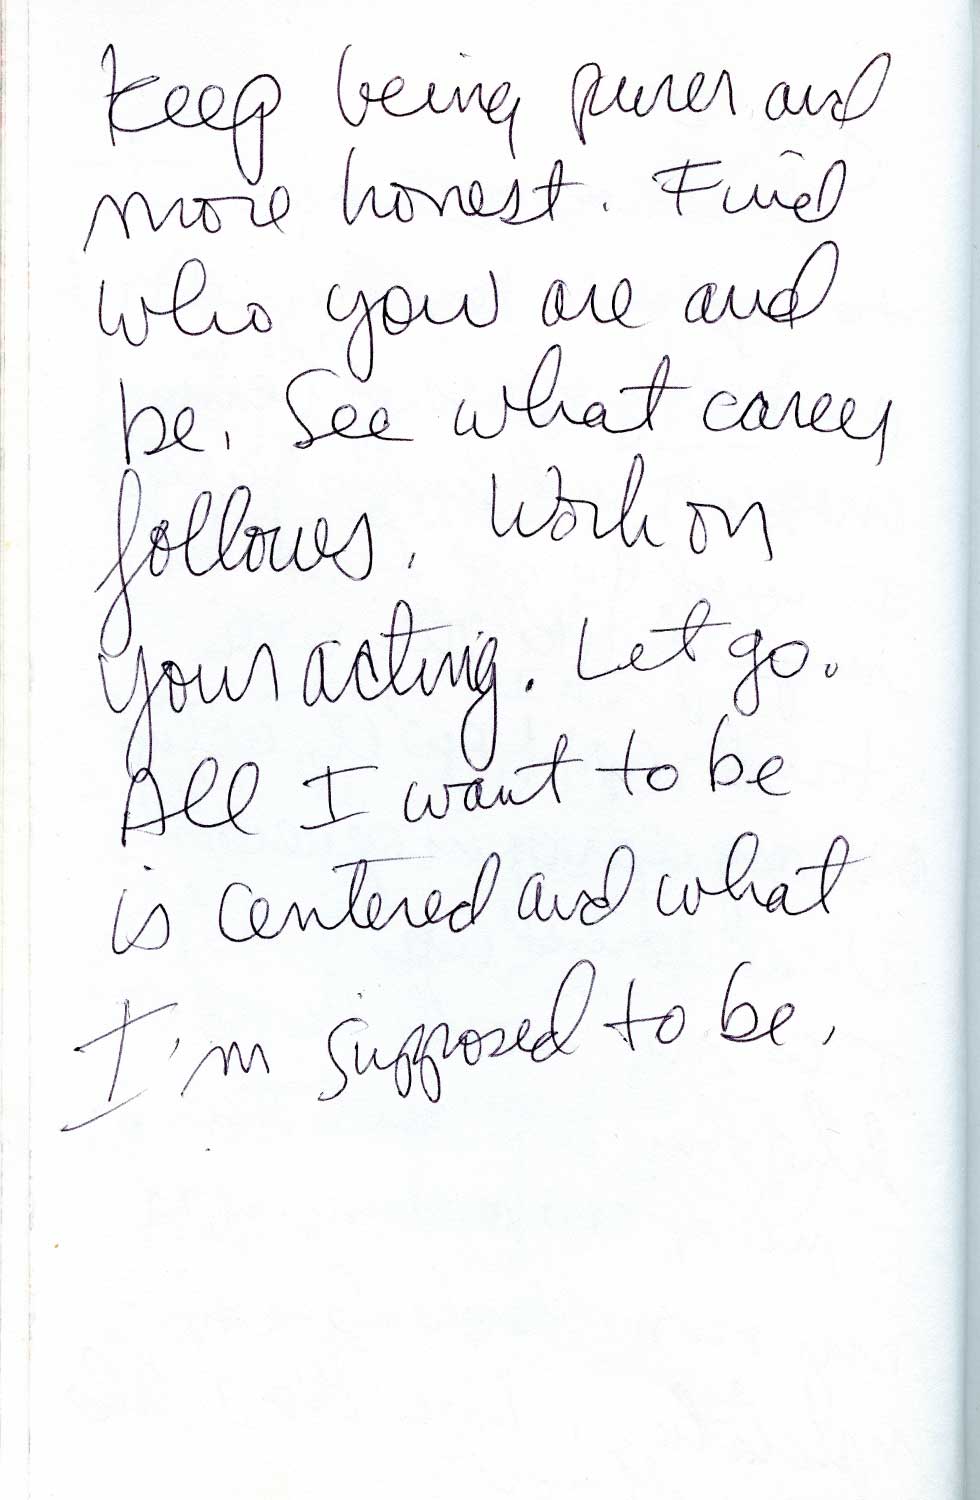 Keep being purer and
more honest. Find
who you are and
be. See what career
follows. Work on
your acting. Let go.
All I want to be
is centered and what
I'm supposed to be.